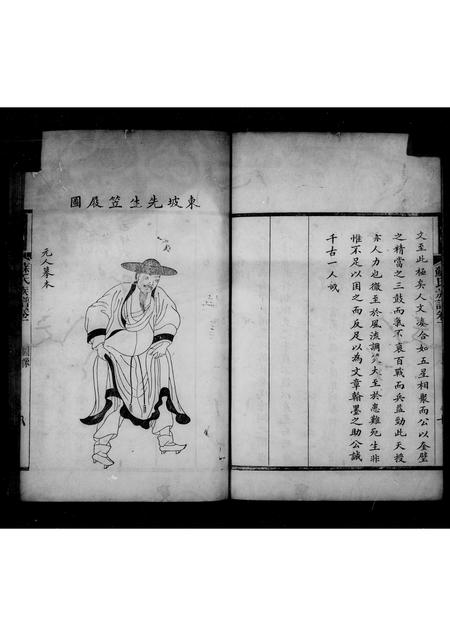 文至此極矣人文湊合如五星相聚而公以奎壁
之精當之三鼓而氣不衰百戰而兵益勁此天授
亦人力也微至於風流調笑大至於患難死生非
惟不足以困之而反足以為文章翰墨之助公誠
千古一人哉
東坡先生笠屐圖
元人墓本
蘇氏族譜卷一
圖像
八